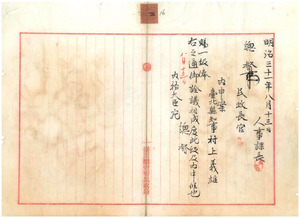 明治三十一年八月十三日
人事課長
總督
民政長官
内申案
臺北縣知事村上義雄
賜一級俸
右之通御詮議相成度此段及内申候也
八月十三日
總督
内務大臣宛